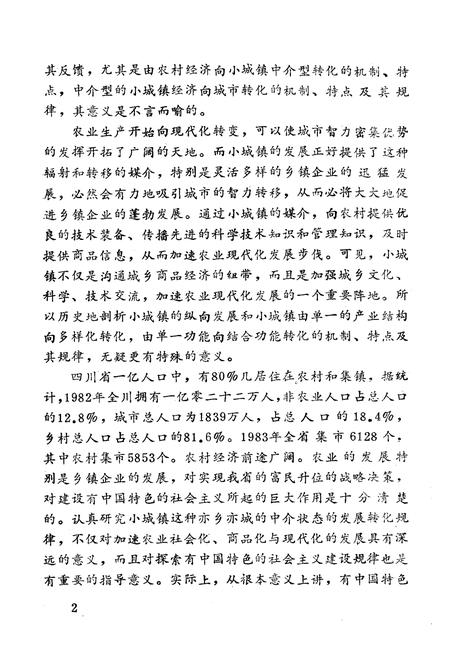 其反馈，尤其是由农村经济向小城镇中介型转化的机制、特
点，中介型的小城镇经济向城市转化的机制、特点及其规
律，其意义是不言而喻的。
农业生产开始向现代化转变，可以使城市智力密集优势
的发挥开拓了广阔的天地。而小城镇的发展正好提供了这种
辐射和转移的媒介，特别是灵活多样的乡镇企业的迅猛发
展，必然会有力地吸引城市的智力转移，从而必将大大地促
进乡镇企业的蓬勃发展。通过小城镇的媒介，向农村提供优
良的技术装备、传播先进的科学技术知识和管理知识，及时
提供商品信息，从而加速农业现代化发展步伐。可见，小城
镇不仅是沟通城乡商品经济的纽带，而且是加强城乡文化、
科学、技术交流，加速农业现代化发展的一个重要阵地。所
以历史地剖析小城镇的纵向发展和小城镇由单一的产业结构
向多样化转化，由单一功能向结合功能转化的机制、特点及
其规律，无疑更有特殊的意义。
四川省一亿人口中，有80%几居住在农村和集镇，据统
计，1982年全川拥有一亿零二十二万人，非农业人口占总人口
的12.8%，城市总人口为1839万人，占总人口的18.4%，
乡村总人口占总人口的81.6%。1983年全省集市6128个，
其中农村集市5853个。农村经济前途广阔。农业的发展特
别是乡镇企业的发展，对实现我省的富民升位的战略决策，
对建设有中国特色的社会主义所起的巨大作用是十分清楚
的。认真研究小城镇这种亦乡亦城的中介状态的发展转化规
律，不仅对加速农业社会化、商品化与现代化的发展具有深
远的意义，而且对探索有中国特色的社会主义建设规律也是
有重要的指导意义。实际上，从根本意义上讲，有中国特色
2